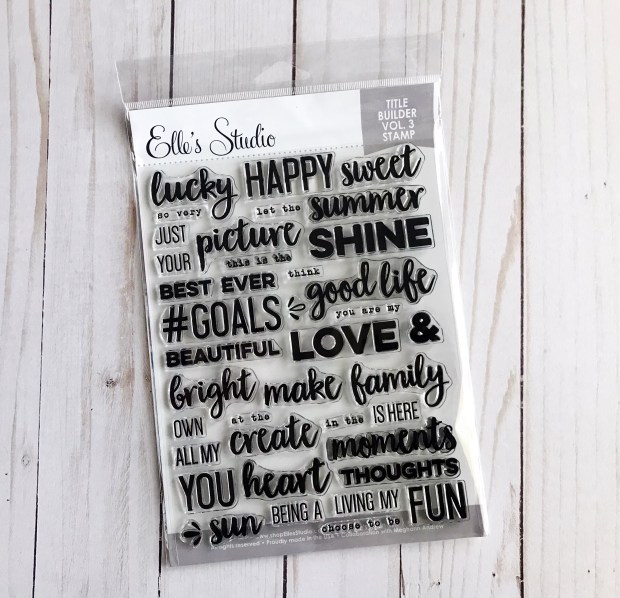 Elle's Studio
TITLE
BUILDER
VOL. 3
STAMP
lucky HAPPY sweet
so very let the summer
JUST picture SHINE
YOUR this is the
BEST EVER think good life
#GOALS you are my
BEAUTIFUL LOVE &
bright make family
OWN at the in the IS HERE
ALL MY create moments
YOU heart THOUGHTS
sun BEING A LIVING MY FUN
choose to be
All rights reserved. • Proudly made in the USA • Collaboration with Meghann Andrew